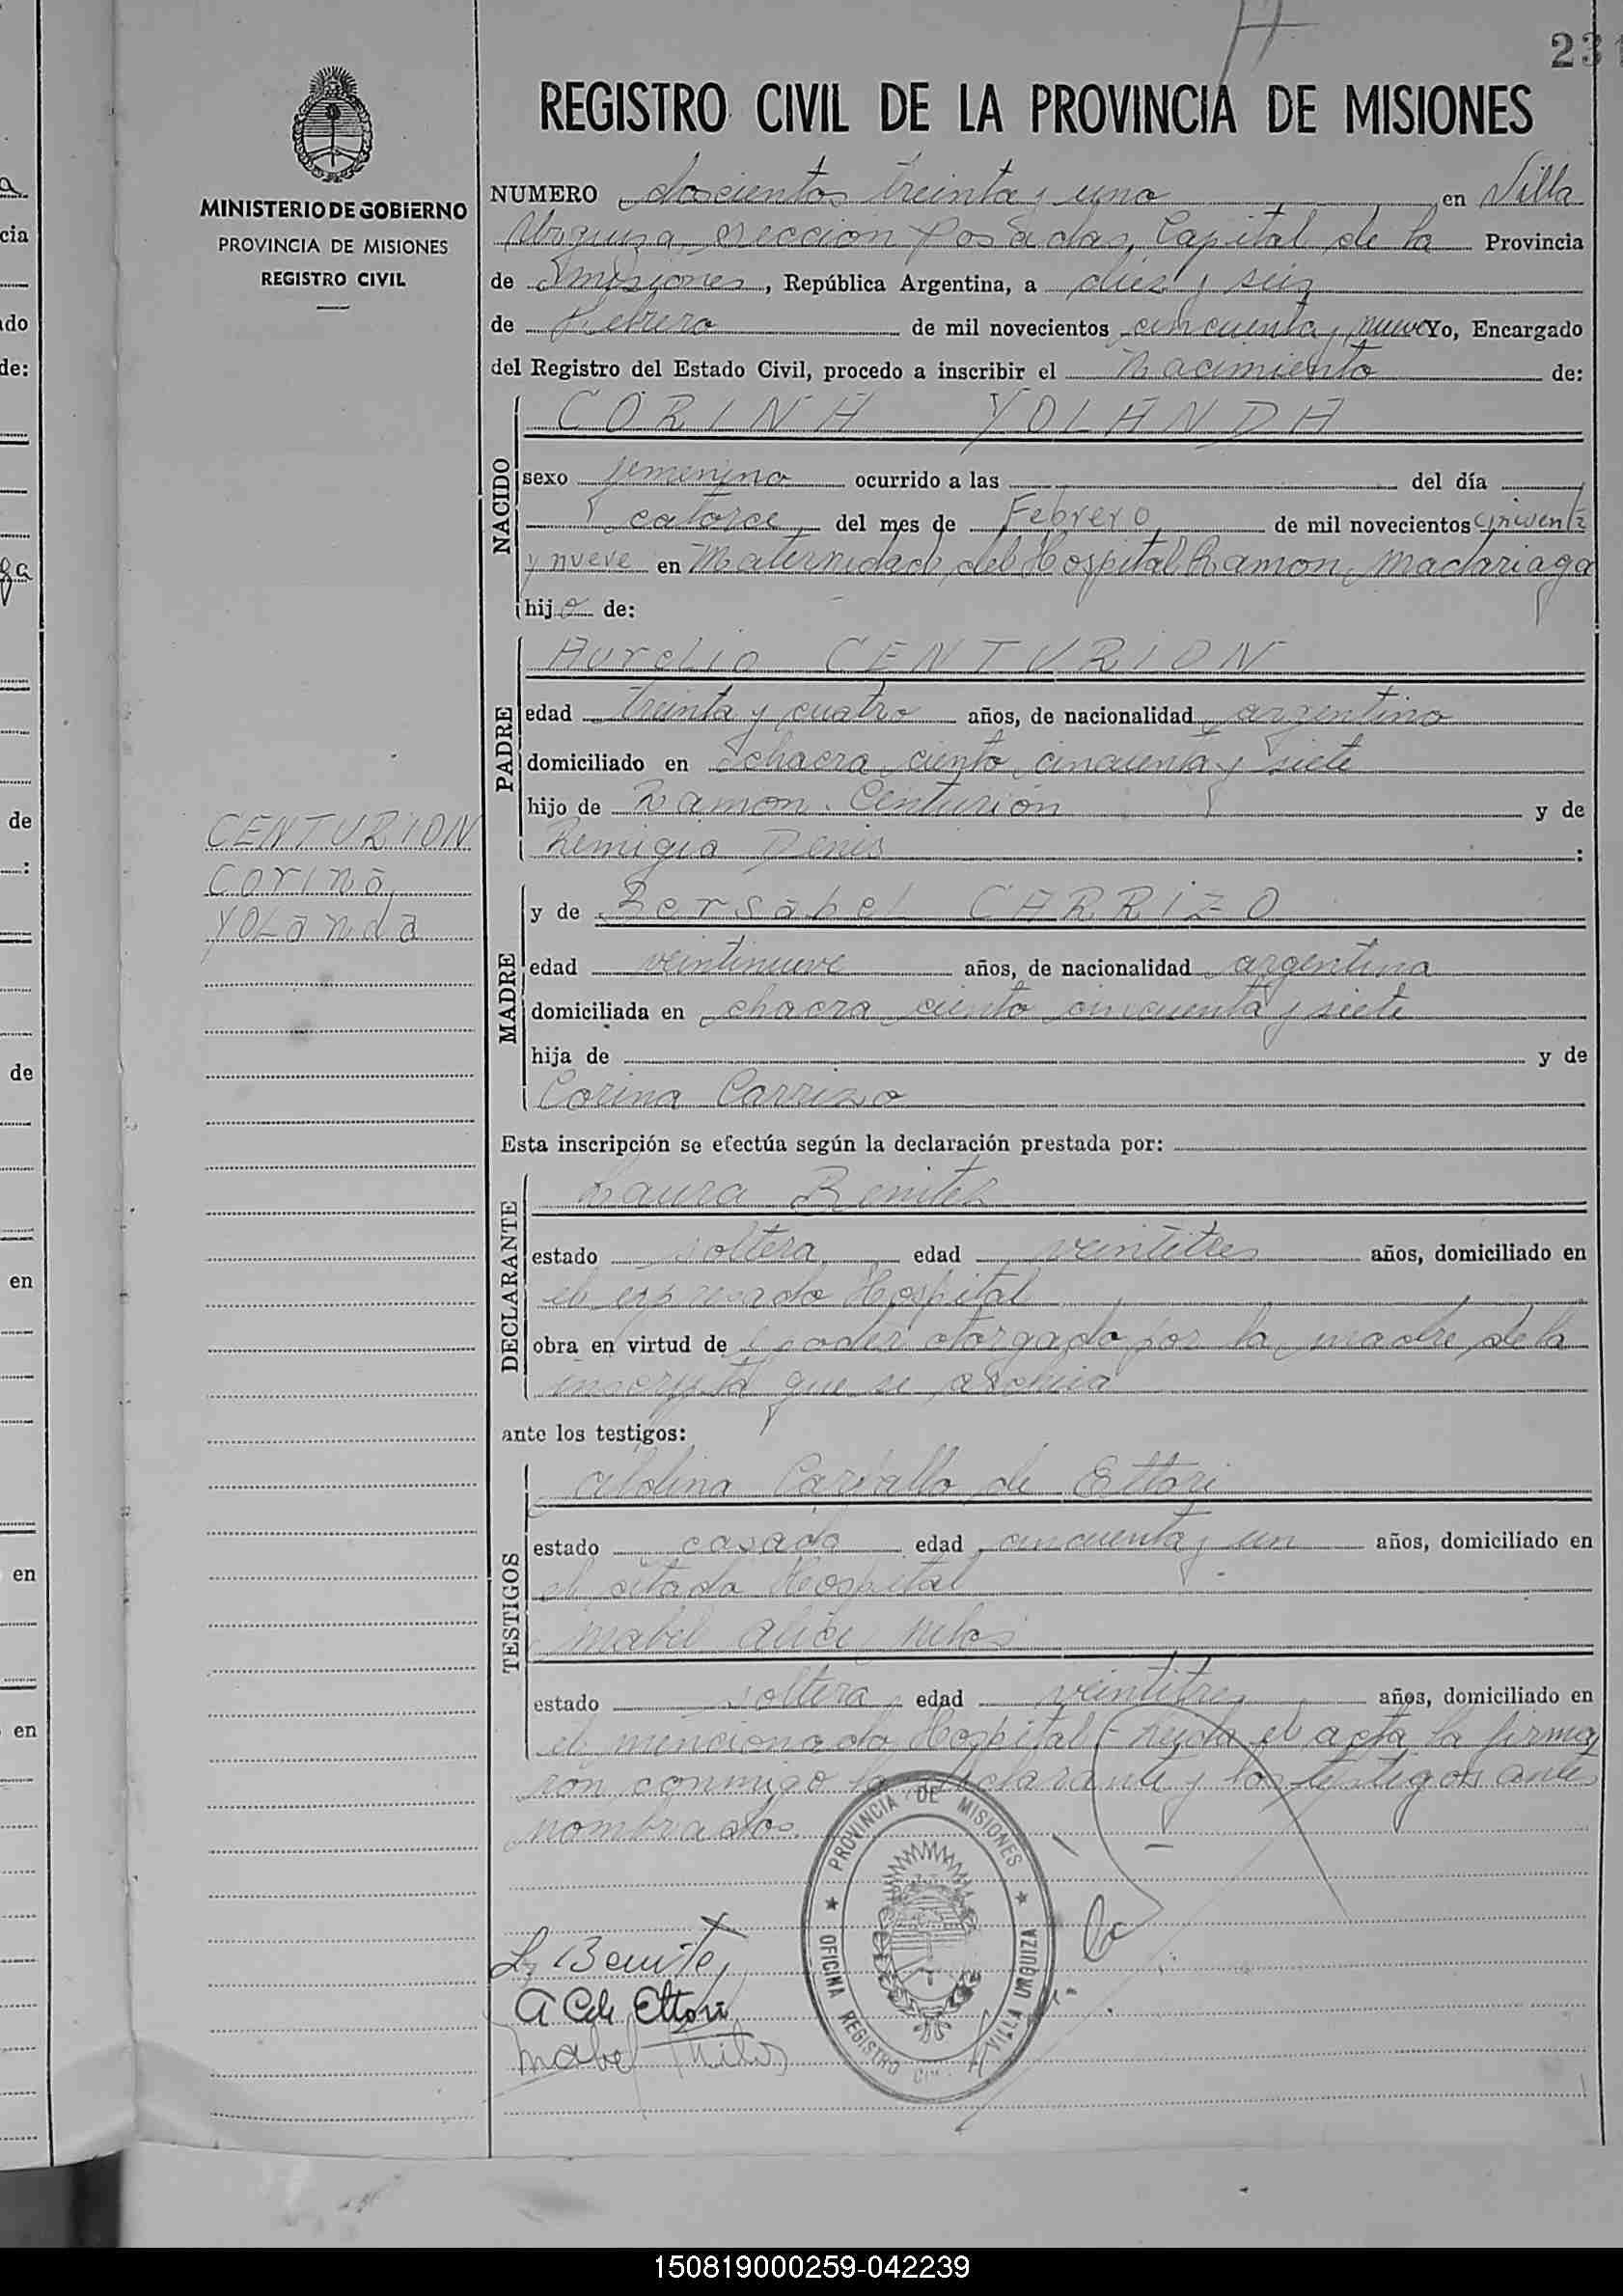 231
REGISTRO CIVIL DE LA PROVINCIA DE MISIONES
MINISTERIO DE GOBIERNO
PROVINCIA DE MISIONES
REGISTRO CIVIL
NUMERO doscientos treinta y uno en Villa
Urquiza, sección Posadas, Capital de la Provincia
de Misiones, República Argentina, a dies y seis
de Febrero de mil novecientos cincuenta y nueve Yo, Encargado
del Registro del Estado Civil, procedo a inscribir el nacimiento de:
NACIDO
CORINA YOLANDA
sexo femenino ocurrido a las del día
catorce del mes de Febrero de mil novecientos cincuenta
y nueve en Maternidad del Hospital Ramon Madariaga
hijo de:
PADRE
Aurelio CENTURION
edad treinta y cuatro años, de nacionalidad argentino
domiciliado en chacra ciento cincuenta y siete
hijo de Ramon Centurión y de
Remigia Denis :
CENTURION
Corina
YOLanda
MADRE
y de Bersabel CARRIZO
edad veintinueve años, de nacionalidad argentina
domiciliada en chacra ciento cincuenta y siete
hija de y de
Corina Carrizo
Esta inscripción se efectúa según la declaración prestada por:
DECLARANTE
Laura Benitez
estado soltera edad veintitres años, domiciliado en
el expresado Hospital
obra en virtud de poder otorgado por la madre de la
inscripta que se archiva
ante los testigos:
TESTIGOS
Aldina Carballo de Ettori
estado casada edad cincuenta y un años, domiciliado en
el citado Hospital
Mabel Alice
estado soltera edad veintitres años, domiciliado en
el mencionado Hospital - Leyda el acta la firma
ron conmigo la declarante y los testigos antes
nombrados.
PROVINCIA DE MISIONES
OFICINA REGISTRO CIVIL VILLA URQUIZA
L. Benitez
A C de Ettori
Mabel
a
cia
do
de:
ga
de
:
de
en
en
en
150819000259-042239